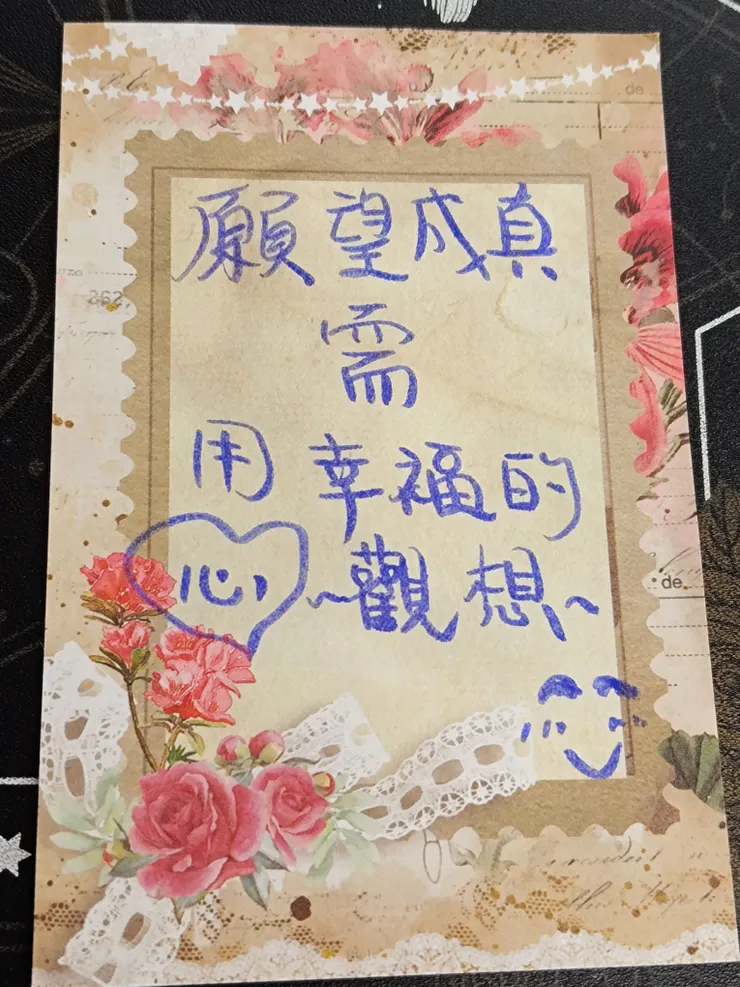 de
262
願望成真
需
用幸福的
心~觀想~
de